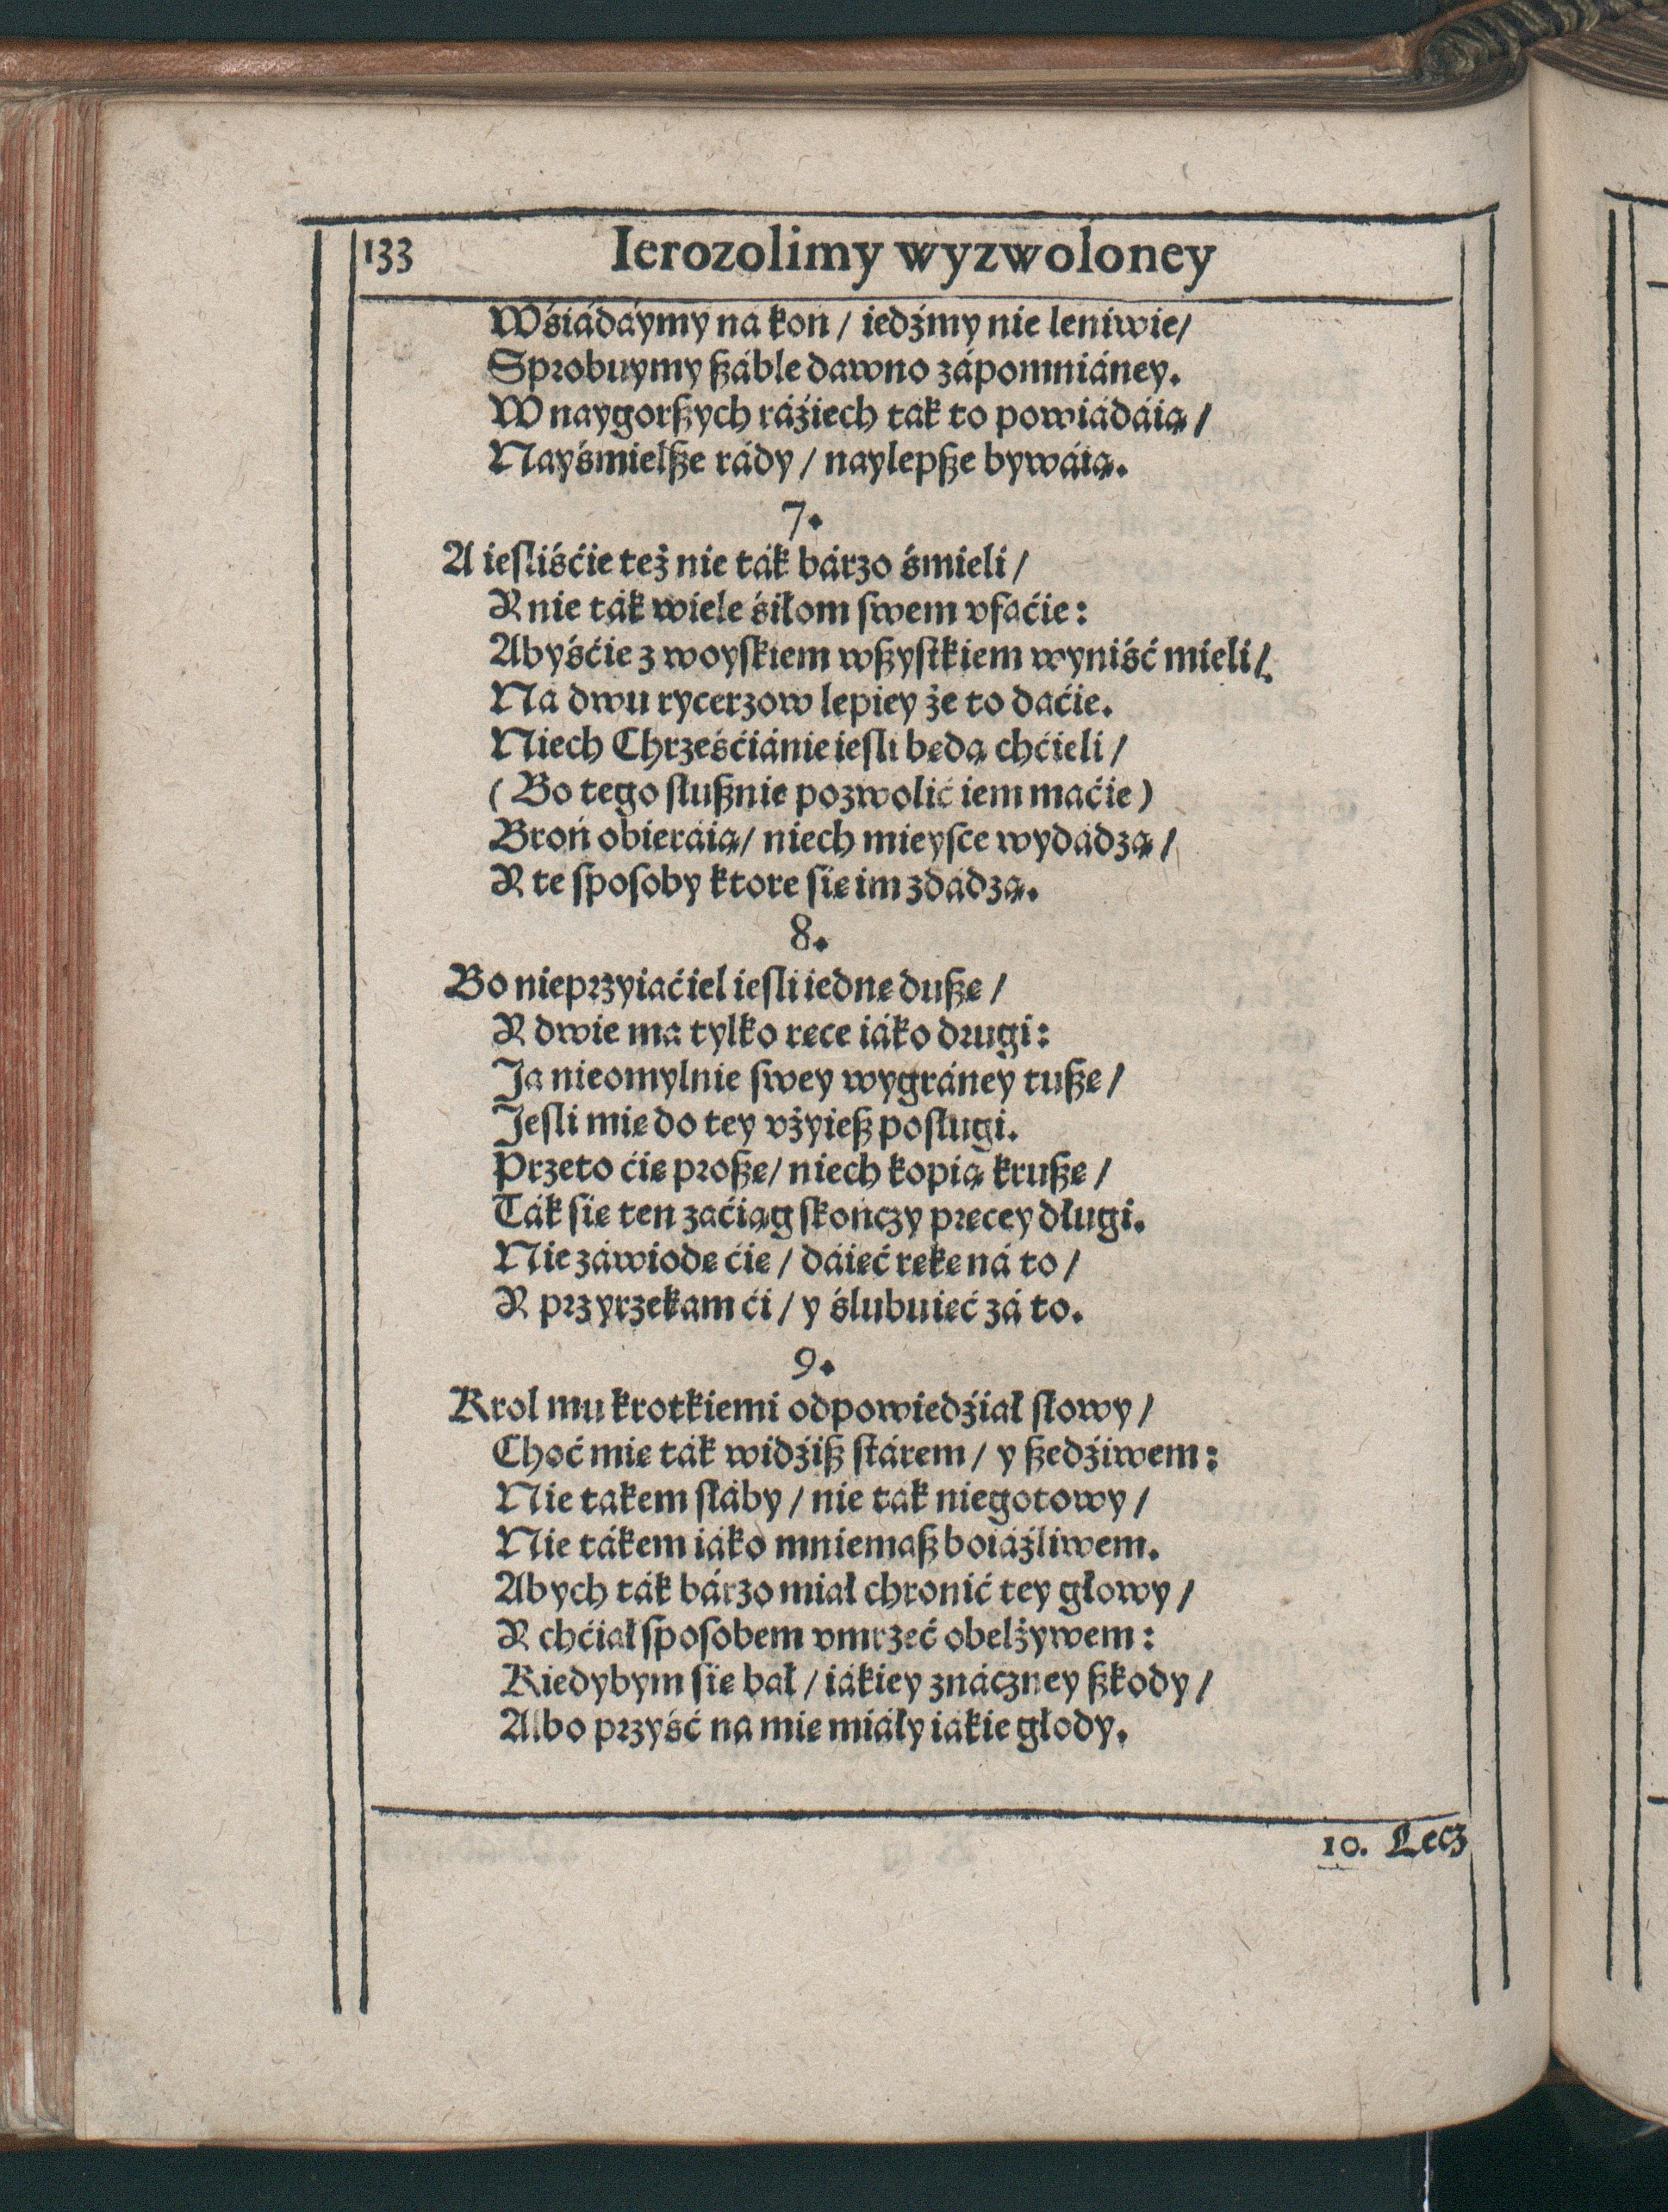 133 Ierozolimy wyzwoloney
Wśiádáymy na koń / iedźmy nie leniwie/
Sprobuymy ßáble dawno zápomniáney.
W naygorßych ráźiech ták to powiádáią /
Nayśmielße rády / naylepße bywáią.
7.
A ieſliśćie też nie ták bárzo śmieli /
Y nie ták wiele śiłom ſwem vfaćie:
Abyśćie z woyſkiem wßyſtkiem wyniść mieli /.
Ná dwu rycerzow lepiey że to daćie.
Niech Chrześćiánie ieſli będą chćieli /
(Bo tego ſłußnie pozwolić iem maćie)
Broń obieráią/ niech mieyſce wydádzą /
Y te ſpoſoby ktore ſię im zdádzą.
8.
Bo nieprzyiaćiel ieſli iednę dußę /
Y dwie ma tylko ręce iáko drugi:
Ja nieomylnie ſwey wygráney tußę /
Jeſli mię do tey vżyieß poſługi.
Przeto ćię proßę/ niech kopią krußę /
Ták ſię ten zaćiąg ſkończy pręcey długi.
Nie záwiodę ćię / dáięć rękę ná to /
Y przyrzekam ći / y ślubuięć zá to.
9.
Krol mu krotkiemi odpowiedźiał ſłowy /
Choć mię ták widźiß ſtárem / y ßedźiwem:
Nie takem ſłáby / nie tak niegotowy /
Nie tákem iáko mniemaß boiáźliwem.
Abych ták bárzo miał chronić tey głowy /
Y chćiał ſpoſobem vmrzeć obelżywem:
Kiedybym ſię bał / iákiey znáczney ßkody /
Albo przyść na mię miáły iákie głody.
10. Lecz